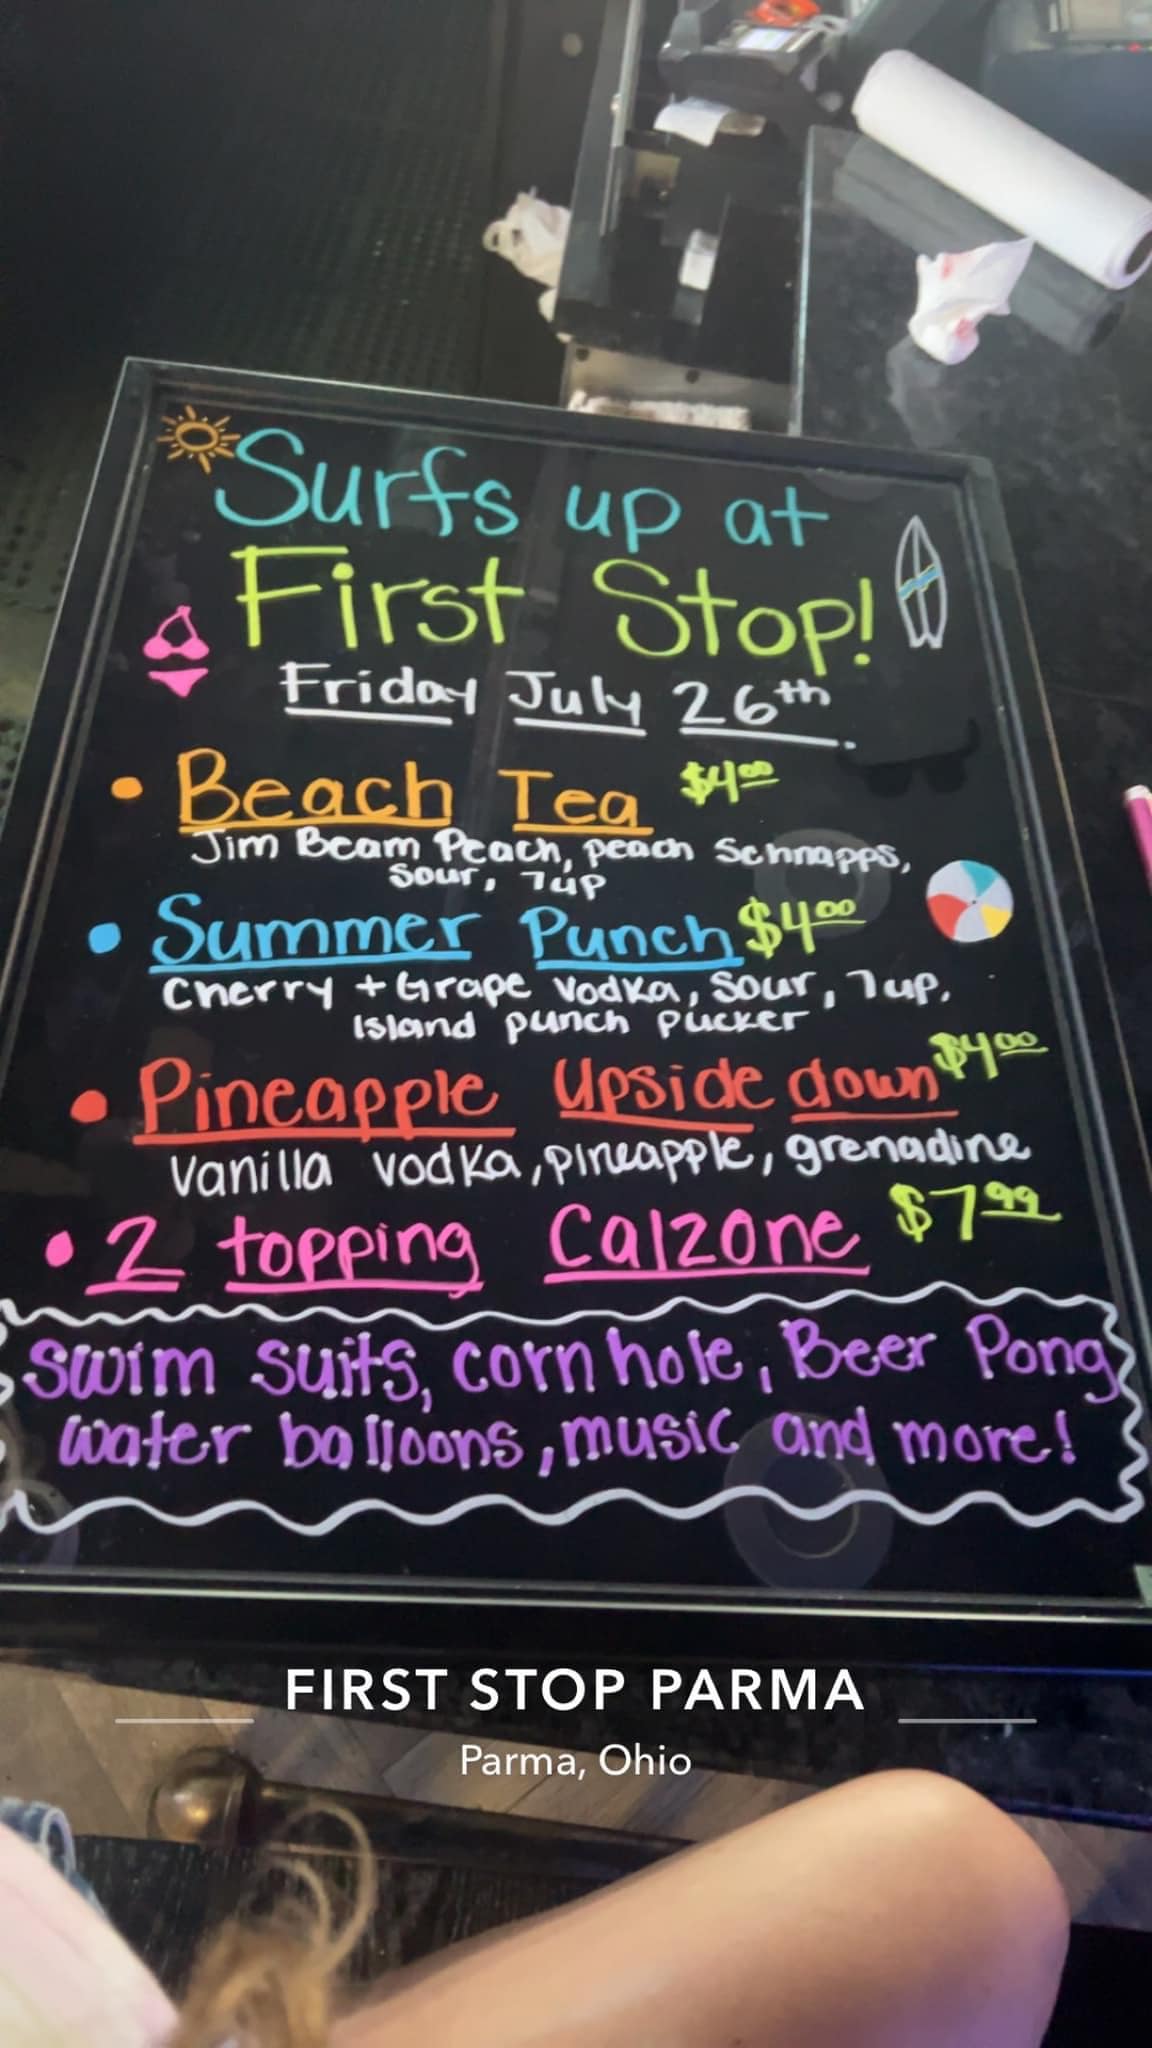 Surfs up at
First Stop!
Friday July 26th.
• Beach Tea $4.00
Jim Beam Peach, peach Schnapps,
Sour, 7up
• Summer Punch $4.00
Cherry + Grape Vodka, Sour, 7up,
Island punch pucker
• Pineapple Upside down $4.00
Vanilla vodka, pineapple, grenadine
• 2 topping Calzone $7.99
Swim suits, corn hole, Beer Pong
water balloons, music and more!
FIRST STOP PARMA
Parma, Ohio